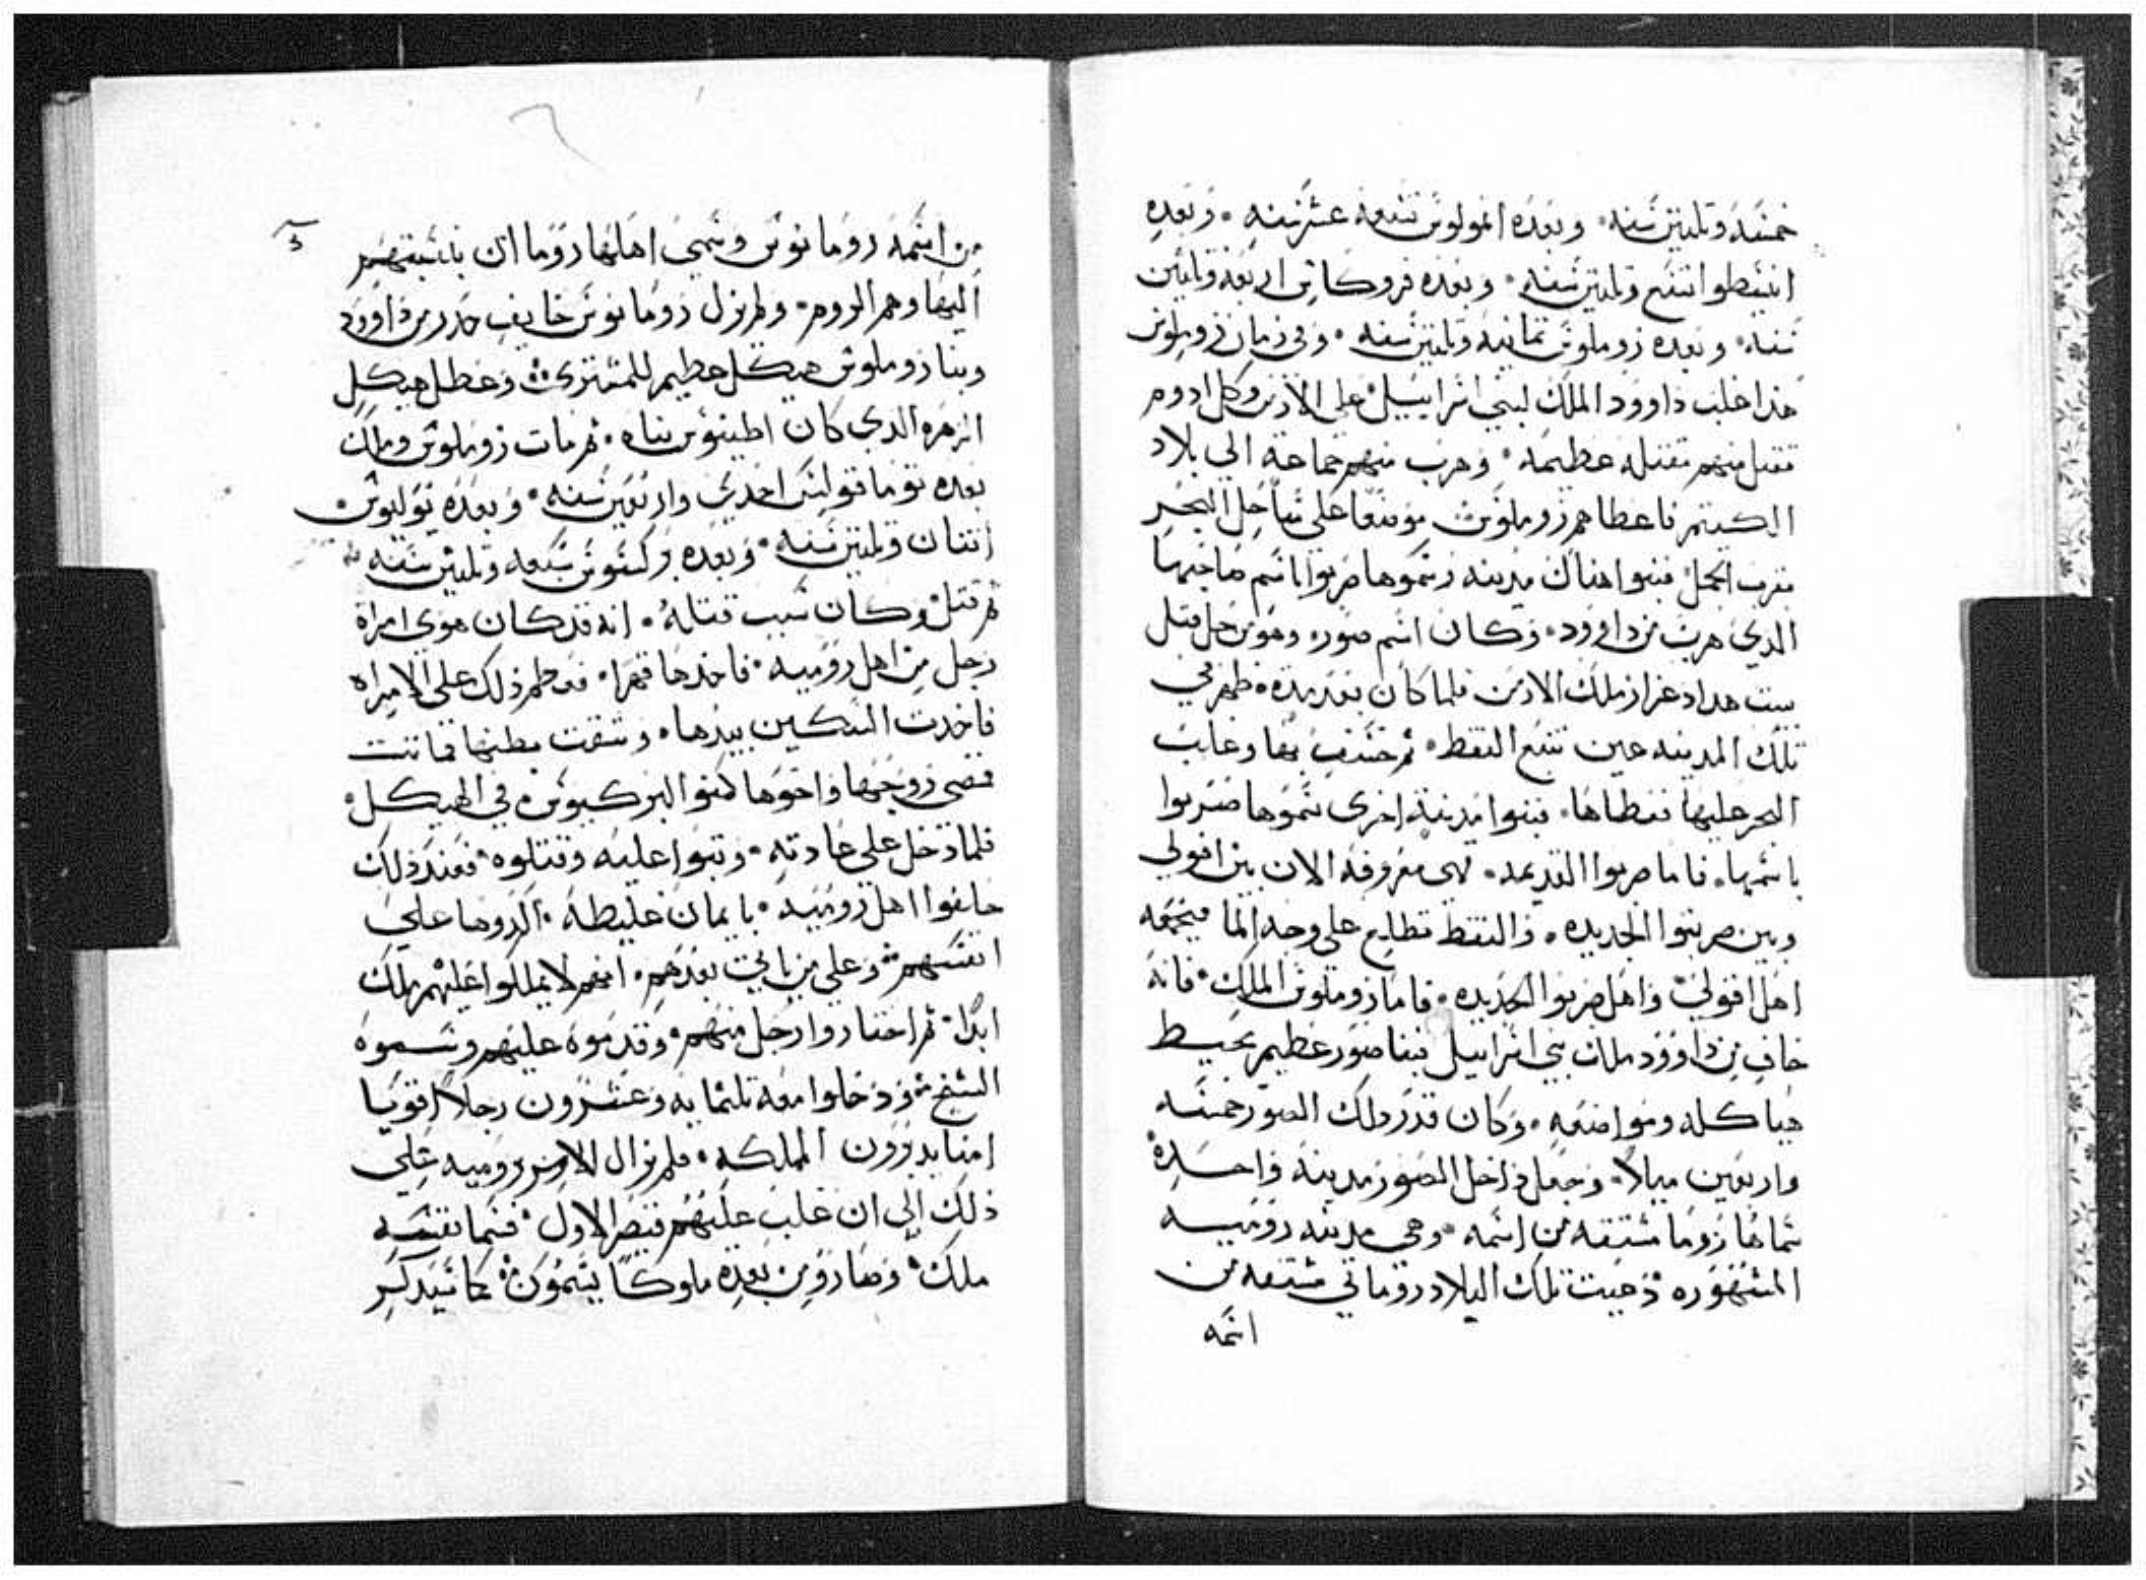 خمسه وتلتين سنه۰ وبعده امولوس تسعه عشر سنه۰ وبعده
اتسع وتلتين سنه۰ وبعده فروكاس اربعه وتلتين
سنه۰ وبعده روملوس تمانيه وتلتين سنه۰ وفي زمان روملوس
هذا غلب داوود الملك لبني اسراييل على الارمن وكل ادوم
فقتل منهم مقتله عظيمه۰ وهرب منهم جماعة الي بلاد
الكيتم فاعطاهم روملوس موضعا على ساحل البحر
بقرب الجبل فبنوا هناك مدينه وسموها صربوا باسم صاحبها
الدي هرب من داوود۰ وكان اسم صور۰ وهو من حل قتل
بيت هداد عزار ملك الارمن فلما كان بعد مدة۰ ظهر في
تلك المدينه عين تنبع النفط۰ ثم خسف بها وغلب
البحر عليها فغطاها۰ فبنوا مدينة اخرى سموها صربوا
باسمها۰ فاما صربوا القديمه۰ هي معروفه الان بين افولي
وبين صربوا الجديده۰ والنفط تطلع على وجه الما فيجمعه
اهل افولي۰ واهل صربوا الجديده۰ فاما روملوس الملك۰ فانه
خاف من داوود ملك بني اسراييل فبنا صور عظيم يحيط
هياكله ومواضعه۰ وكان قدر دلك الصور خمسه
واربعين ميلا۰ وجعل داخل الصور مدينة واحده
سماها روما مشتقه من اسمه۰ وهي مدينه روميه
المشهوره۰ وسميت تلك البلاد روماني مشتقه من
اسمه
من اسمه رومانوس وسمي اهلها روما ان بانتسبتهم
اليها وهم الروم۰ ولم يزل رومانوس خايف حدر من داوود
وبنا روملوس هيكل عظيم للمشتري۰ وعطل هيكل
الزهره الدي كان اطينوس بناه۰ ثم مات روملوس وملك
بعده احدي واربعين سنه۰ وبعده توليوس
اتنان وتلتين سنه۰ وبعده سبعه وتلتين سنه۰
ثم قتل۰ وكان سبب قتله۰ انه قد كان هوي امراة
رجل من اهل روميه۰ فاخدها قهرا۰ فعظم ذلك على الامراه
فاخدت السكين بيدها۰ وشقت بطنها فماتت
فمضى زوجها واخوها كمنوا البركسيوس في الهيكل۰
فلما دخل على عادته۰ وتبوا عليه وقتلوه۰ فعند ذلك
حلفوا اهل روميه۰ بايمان غليظة۰ الزموها علي
انفسهم۰ وعلى من ياتي بعدهم۰ انهم لا يملكوا عليهم ملك
ابدا۰ ثم اختاروا رجل منهم۰ وقدموه عليهم وسموه
الشيخ۰ ودخلوا معه تلثمايه وعشرون رجلا اقويا
امنا يدبرون المملكه۰ فلم يزال الامر بروميه علي
ذلك الي ان غلب عليهم قيصر الاول۰ فسما نفسه
ملك۰ وصارو من بعده ملوكا يسمون۰ كما سيدكر